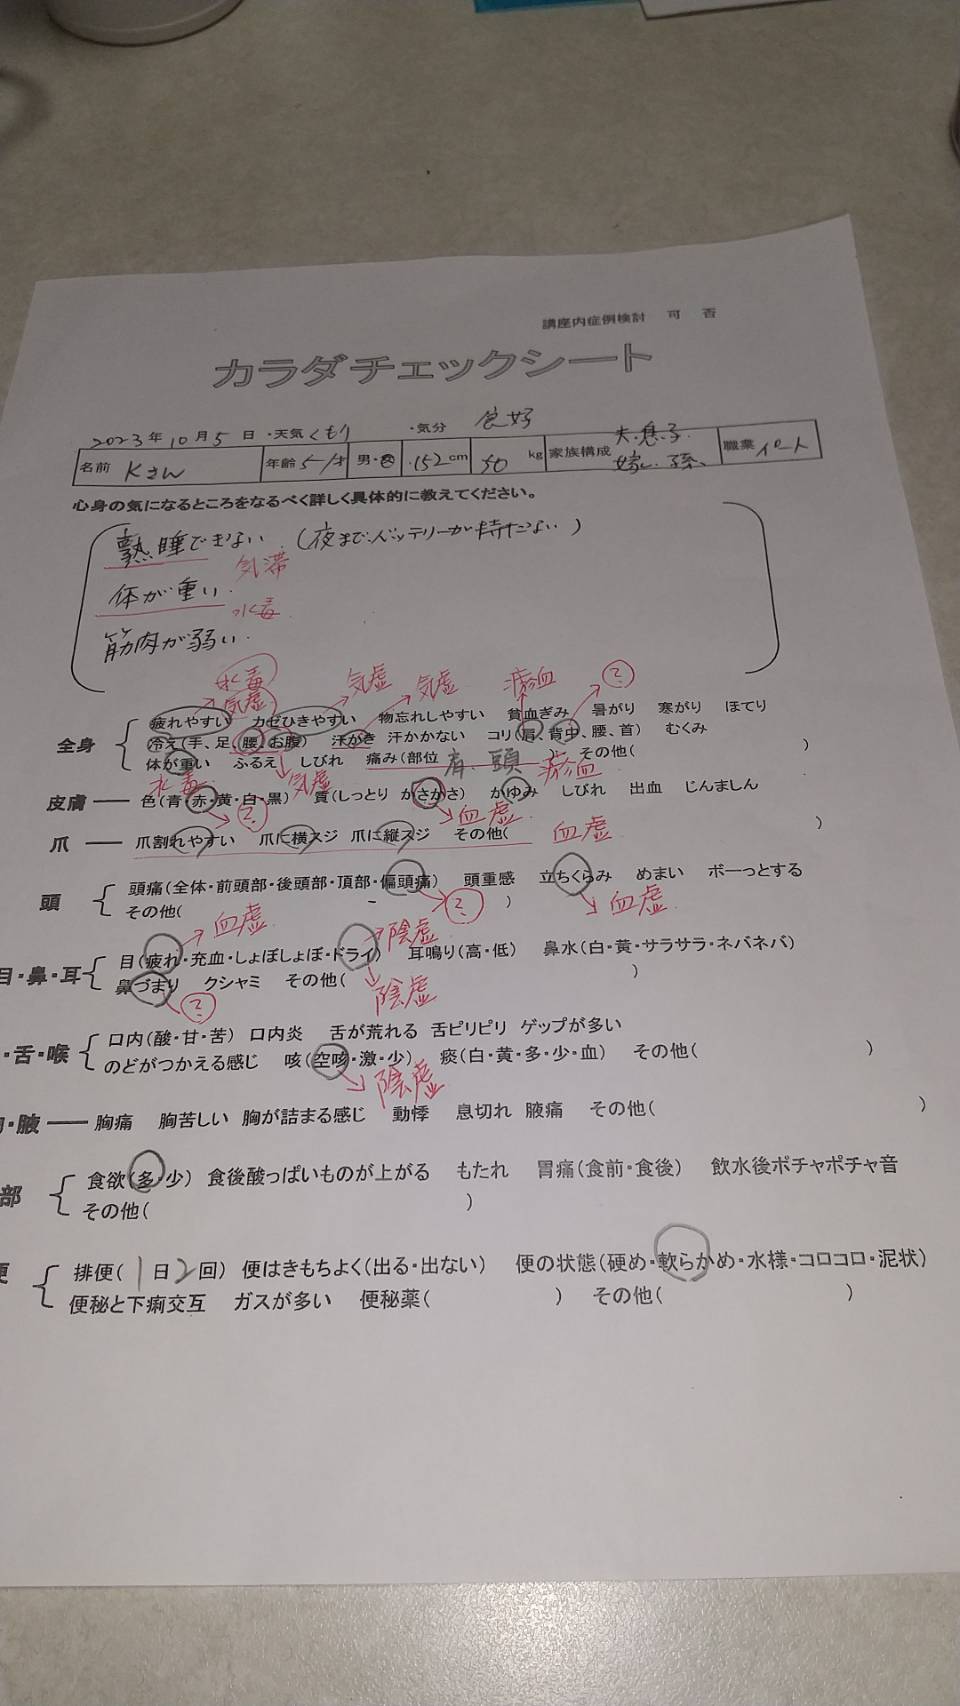 講座内症例検討 可 否
カラダチェックシート
2023年10月5日 ・天気 くもり ・気分 良好
名前 Kさん 年齢 51才 男・女 152cm 50kg 家族構成 夫・息子 嫁・孫 職業 パート
心身の気になるところをなるべく詳しく具体的に教えてください。
熟睡できない (夜までバッテリーが持たない)
気滞
体が重い
水毒
筋肉が弱い
水毒
気虚 気虚 気虚 瘀血 ?
疲れやすい カゼひきやすい 物忘れしやすい 貧血ぎみ 暑がり 寒がり ほてり
全身 冷え(手、足、腰、お腹) 汗かき 汗かかない コリ(肩、背中、腰、首) むくみ
体が重い ふるえ しびれ 痛み(部位 肩、頭 その他( )
水毒 気虚 瘀血
皮膚 色(青・赤・黄・白・黒) 質(しっとり かさかさ) かゆみ しびれ 出血 じんましん
? 血虚
爪 爪割れやすい 爪に横スジ 爪に縦スジ その他( )
血虚
頭 頭痛(全体・前頭部・後頭部・頂部・偏頭痛) 頭重感 立ちくらみ めまい ボーっとする
その他( )
血虚 ? 血虚
陰虚
目・鼻・耳 目(疲れ・充血・しょぼしょぼ・ドライ) 耳鳴り(高・低) 鼻水(白・黄・サラサラ・ネバネバ)
鼻づまり クシャミ その他( )
? 陰虚
・舌・喉 口内(酸・甘・苦) 口内炎 舌が荒れる 舌ピリピリ ゲップが多い
のどがつかえる感じ 咳(空咳・激・少) 痰(白・黄・多・少・血) その他( )
陰虚
・腋 胸痛 胸苦しい 胸が詰まる感じ 動悸 息切れ 腋痛 その他( )
部 食欲(多・少) 食後酸っぱいものが上がる もたれ 胃痛(食前・食後) 飲水後ポチャポチャ音
その他( )
便 排便(1日2回) 便はきもちよく(出る・出ない) 便の状態(硬め・軟らかめ・水様・コロコロ・泥状)
便秘と下痢交互 ガスが多い 便秘薬( ) その他( )